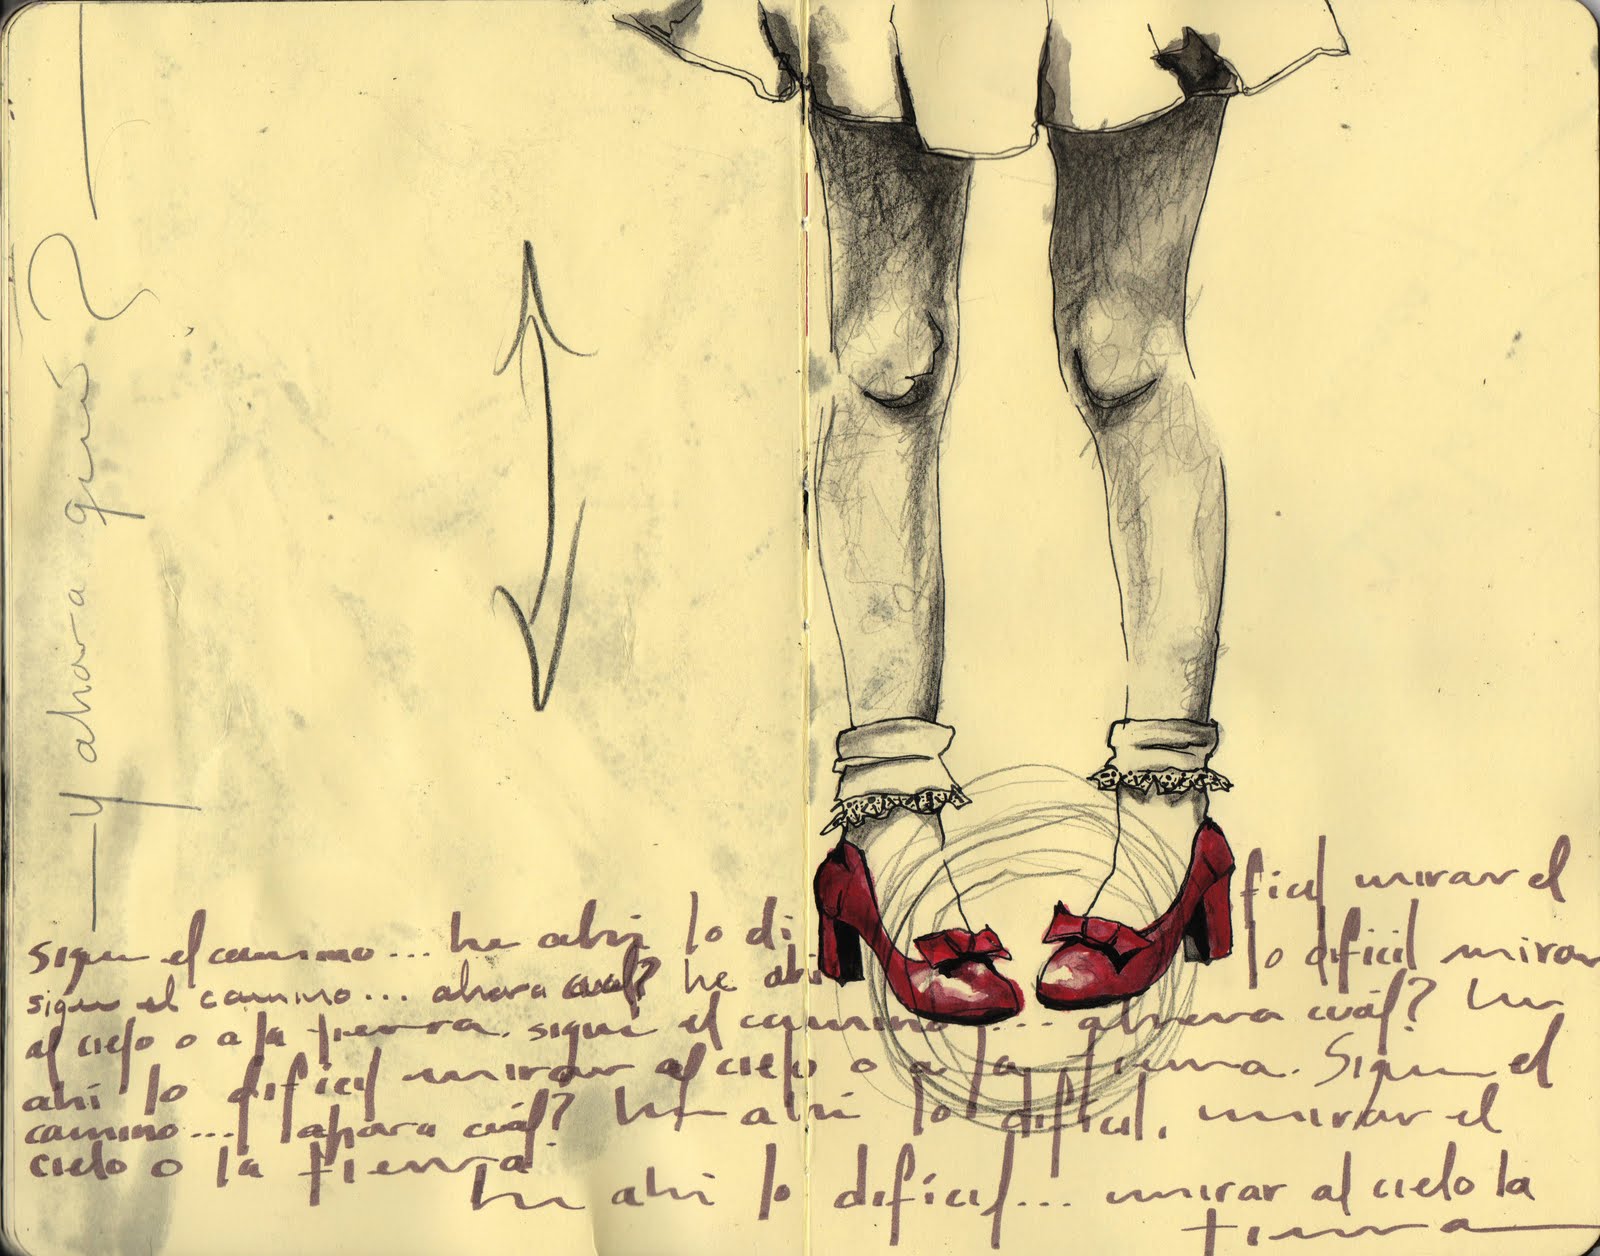 —y ahora qué?—
sigue el camino... he ahí lo difícil mirar el
sigue el camino... ahora cuál? he ahí lo difícil mirar
al cielo o a la tierra. sigue el camino.... ahora cuál? he
ahí lo difícil mirar al cielo o a la tierra. Sigue el
camino... ahora cuál? he ahí lo difícil, mirar el
cielo o la tierra
he ahí lo difícil... mirar al cielo la
tierra